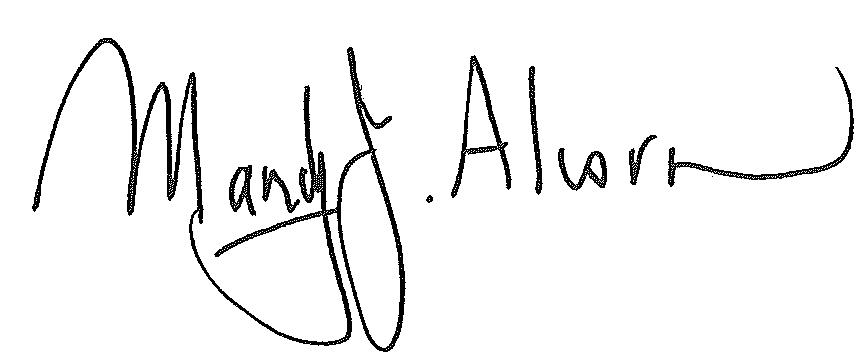 Mandy J. Alcorn